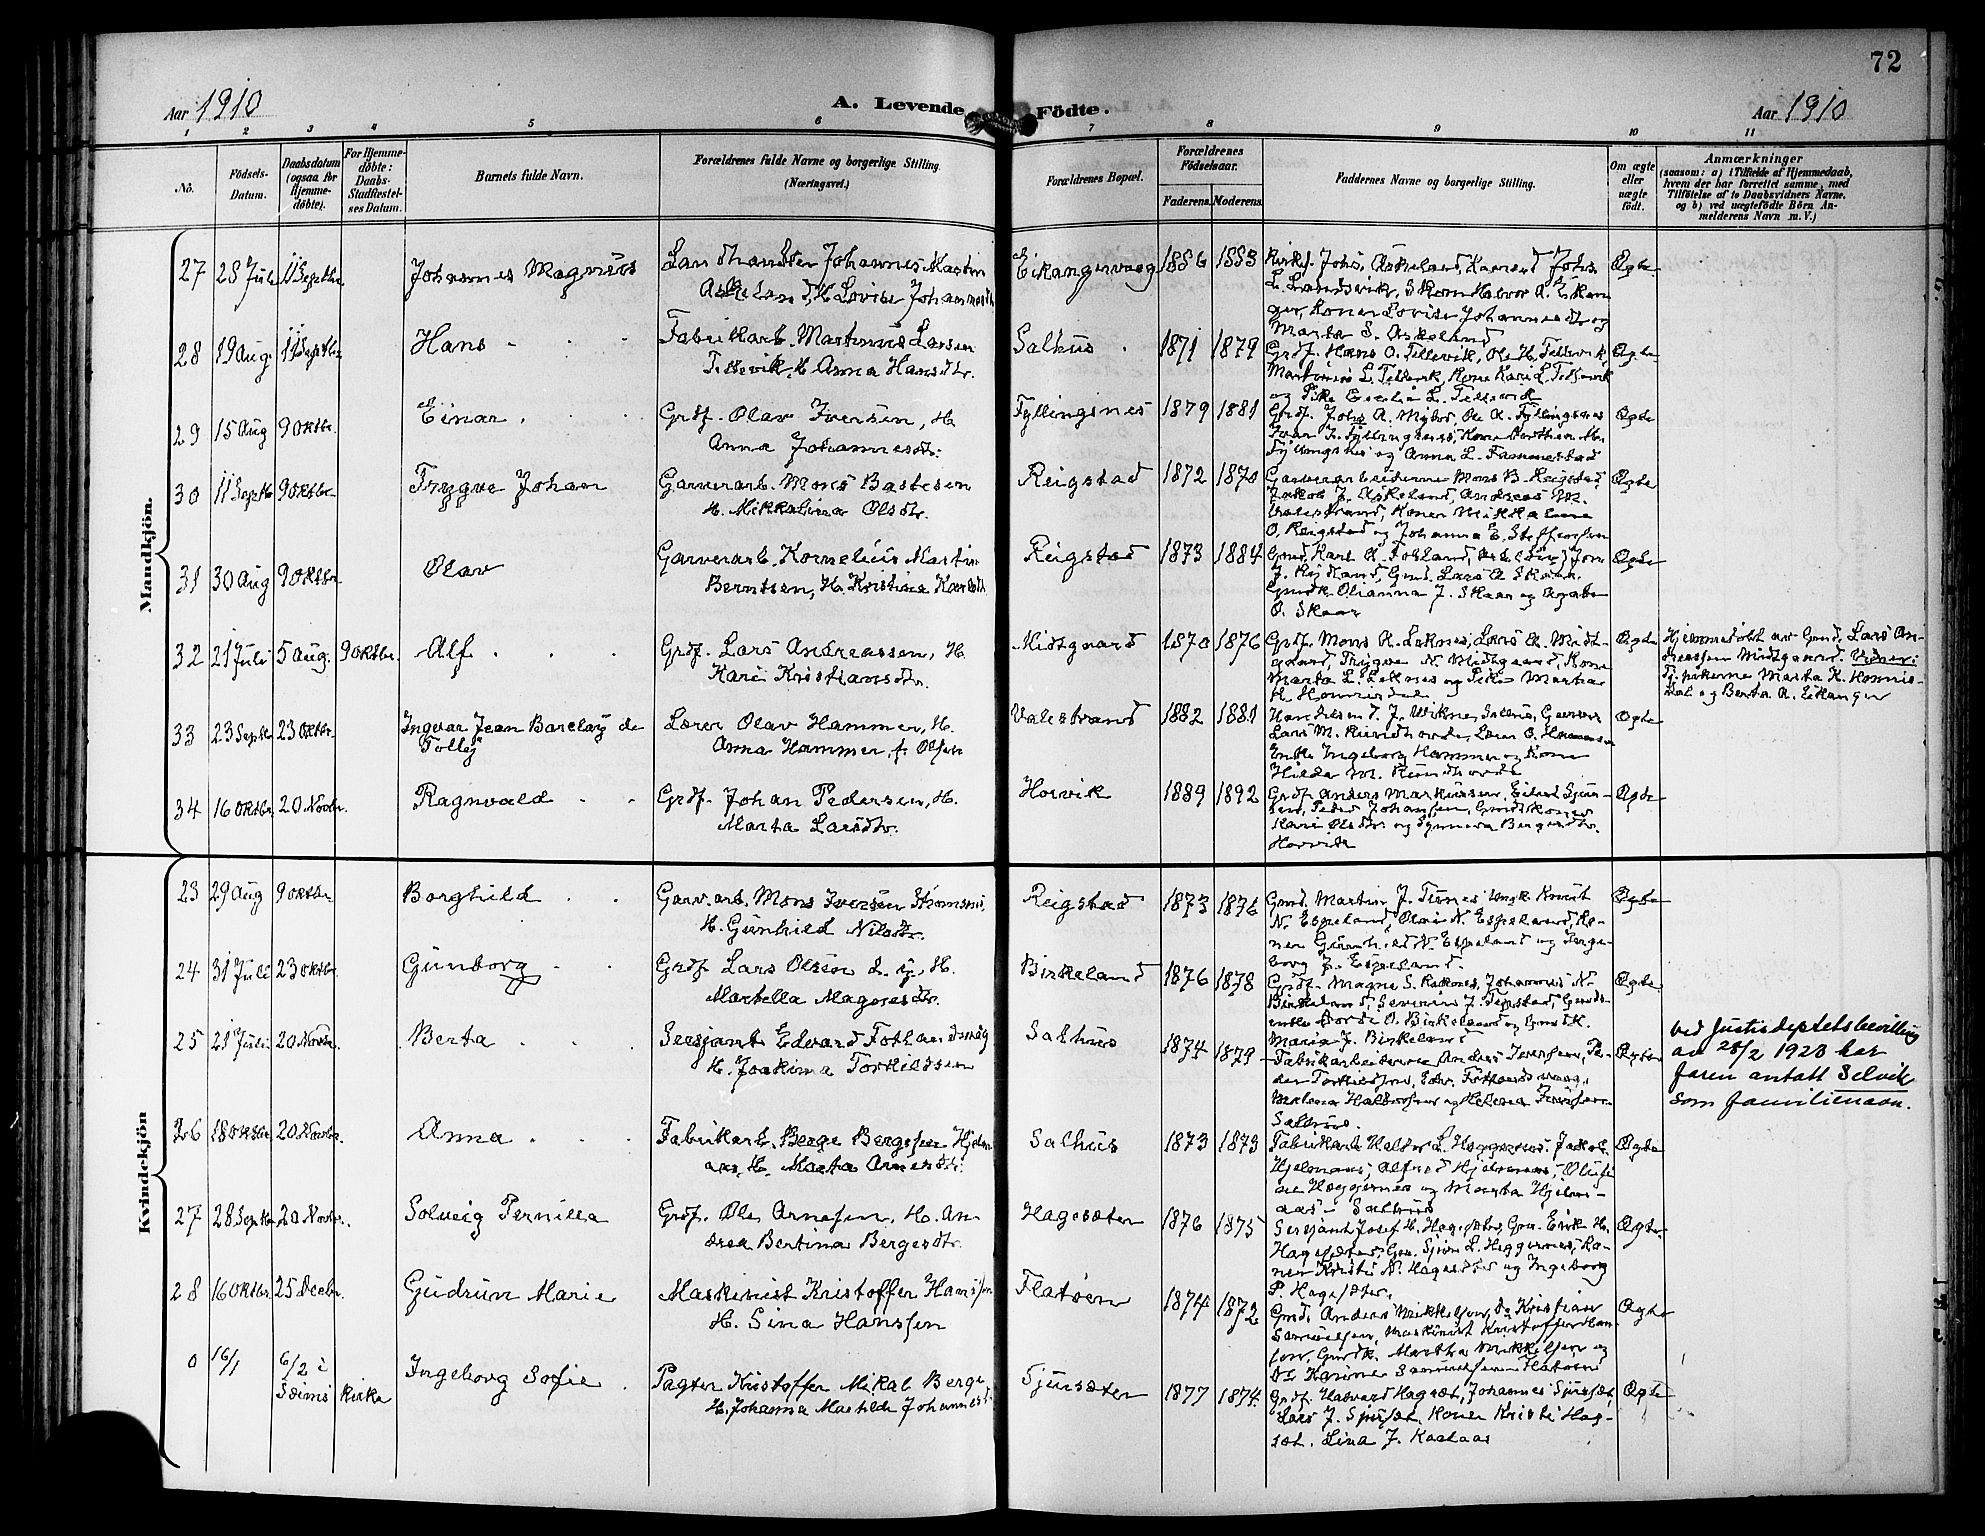 72
Aar 1910
A. Levende Födte.
Aar 1910
1 2 3 4 5 6 7 8 9 10 11
No.
Födsels-
Datum.
Daabsdatum
(ogsaa for
Hjemme-
döbte).
For Hjemme-
döbte:
Daabs-
Stadfæstel-
ses Datum.
Barnets fulde Navn.
Forældrenes fulde Navne og borgerlige Stilling.
(Næringsvei.)
Forældrenes Bopæl.
Forældrenes
Födselsaar.
Faderens. Moderens.
Faddernes Navne og borgerlige Stilling.
Om ægte
eller
uægte
födt.
Anmærkninger
(saasom: a) i Tilfælde af Hjemmedaab,
hvem der har forrettet samme, med
Tilföielse af to Daabsvidners Navne.
og b) ved uægtefödte Börn An-
melderens Navn m. V.)
Mandkjön.
27 28 Juli 11 Septbr. Johannes Magnus
Johannes Martin
Askeland, H. Lovise Johannesdtr.
Eikangervaag 1886 1883
Kirks. Johs. Askeland, Johs.
Ægte
L. Landsvik,
Kone Lovise Johannesdtr og
Marta S. Askeland
28 19 Aug. 11 Septbr. Hans
Fabrikarb. Martinus Larsen
Tellevik, H. Anna Hansdtr.
Salhus 1871 1879
Grdf. Hans O. Tellevik, Ole H. Tellevik,
Martinus L. Tellevik, Kone Kari L. Tellevik
og Pike Cecilia L. Tellevik
Ægte
29 15 Aug 9 Oktbr. Einar
Grdf. Olav Iversen, H.
Anna Johannesdtr.
Fyllingsnes 1879 1881
Grdf. Johs A. Myhr, Ole A. Fyllingsnes
Ivar I. Fyllingsnes, Kone Dorthea M.
Fyllingsnes og Anna L. Tommestad
Ægte
30 11 Septb 9 Oktbr. Trygve Johan
Garverarb. Mons Bastesen
H. Mikkalina Olsdtr.
Reigstad 1872 1870
Garverarbeiderne Mons B. Reigstad,
Jakob J. Askeland, Andreas M.
Valestrand, Koner Mikkaline
O. Reigstad og Johanna E. Steffensen
Ægte
31 30 Aug 9 Oktbr Olav
Garverarb. Kornelius Martin
Berntsen, H. Kristine Karlsdtr.
Reigstad 1873 1884
Gmd. Karl A.
J. Rydland, Gmd. Lars A. Skaar,
Gmdk. Olianna J. Skaar og Agate
O. Skaar
Ægte
32 21 Juli 5 Aug. 9 Oktbr. Alf
Grdf. Lars Andreassen, H.
Kari Kristiansdtr.
Midtgaard 1870 1876
Grdf. Mons K. Leknes, Lars A. Midt-
gaard, Trygve N. Midtgaard, Kone
Marta L. Leknes og Pike Marta
K. Honnisdal
Ægte
Hjemmedøbt av Gmd. Lars An-
dreassen Midtgaard. Vidner:
Pikerne Marta K. Honnis-
dal og Berta A. Eikanger
33 23 Septbr 23 Oktbr. Ingvar Jean Barclay de
Tolly
Lærer Olav Hammer, H.
Anna Hammer, f. Olsen
Valestrand 1882 1881
Handelsmd. J. Wiknes, Salhus, Garver
Lars M. Rundhovde, Lærer O. Hammer
Enke Ingeborg Hammer og Kone
Hilda M. Rundhovde
Ægte
34 16 Oktbr. 20 Novbr. Ragnvald
Grdf. Johan Pedersen, H.
Marta Larsdtr.
Horvik 1889 1892
Grdf. Anders Markussen, Eilert Sjur-
sen, Peder Johansen, Gmdskoner
Kari Olsdtr. og Synneva Bergesdtr.
Horvik
Ægte
Kvindekjön
23 29 Aug 9 Oktbr Borghild
Garv.arb. Mons Iversen
H. Gunhild Nilsdtr.
Reigstad 1873 1876
Gmd. Martin J. Tunes, Ungk. Knut
N. Espeland, Olai N. Espeland, Ko-
ner Gunhild N. Espeland og Inge-
borg J. Espeland.
Ægte
24 31 Juli 23 Oktbr. Gunborg
Grdf. Lars Olsen d. y., H.
Martella Magnesdtr.
Birkeland 1876 1878
Grdf. Magne S. Raknes, Johannes N.
Birkeland, Severin J. Tepstad, Gmds-
enke Dorde O. Birkeland og Gmdsk.
Maria J. Birkeland
Ægte
25 21 Juli 20 Novbr. Berta
Sersjant Edvard Fotlandsvaag
H. Joakima Torkildsen
Salhus 1874 1879
Fabrikarbeiderne Anders Iversen, Pe-
der Torkildsen, Edv. Fotlandsvaag,
Malena Halvorsen og Helena Iversen
Salhus.
Ægte
Ved Justisdeptets bevilling
av 28/2 1923 har
faren antatt Selvik
som familienavn.
26 18 Oktbr. 20 Novbr. Anna
Fabrikarb. Berge Bergesen Hjelm-
aas, H. Marta Arnesdtr.
Salhus 1873 1873
Fabrikarb. Haldor L. Heggernes, Jakob
Hjelmaas, Alfred Hjelmaas, Olufi-
ne Heggernes og Marta Hjelm-
aas - Salhus
Ægte
27 28 Septbr 20 Novbr. Solveig Pernilla
Grdf. Ole Arnesen, H. An-
drea Bertina Bergesdtr.
Hagesæter 1876 1875
Sersjant Josef H. Hagesæter, Gm. Eirik H.
Hagesæter, Gm. Sjur L. Heggernes, Ko-
ner Kristi N. Hagesæter og Ingeborg
P. Hagesæter.
Ægte.
28 16 Oktbr. 25 Decbr. Gudrun Marie
Maskinist Kristoffer Hanssen
H. Sina Hanssen
Flatøen 1874 1872
Gmd. Anders Mikkelsen, do Kristian
Samuelsen, Maskinist Kristoffer Han-
sen, Gmdk. Martha Mikkelsen og
do Karine Samuelsen - Flatøen
Ægte
0 16/1 6/2 i
Seims Kirke
Ingeborg Sofie
Pagter Kristoffer Mikal Berge
H. Johanna Matilde Johannesdtr.
Sjursæter 1877 1874.
Grdf. Halvard Hagesæt, Johannes Sjursæt,
Lars J. Sjursæt, Koner Kristi Hag-
sæt, Lina J. Kaalaas
Ægte